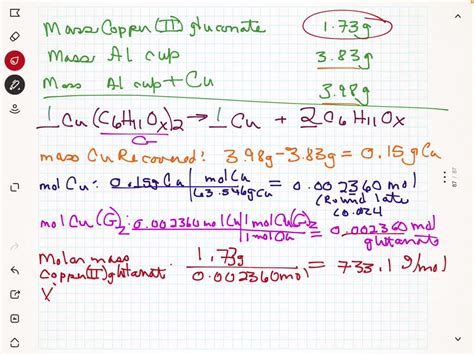 Mass Copper (II) gluconate 1.73g
Mass Al cup 3.83g
Mass Al cup + Cu 3.98g
1 Cu(C6H11Ox)2 → 1 Cu + 2 C6H11Ox
G
mass Cu Recovered: 3.98g - 3.83g = 0.15g Cu
mol Cu: 0.15g Cu | mol Cu / 63.546g Cu = 0.002360 mol
(Round late
(0.0024
mol Cu(G)2: 0.002360 mol Cu | 1 mol Cu(G)2 / 1 mol Cu = 0.002360 mol
glutanate
Molar mass
Copper(II) glutanate: 1.73g / 0.002360 mol = 733.1 g/mol
X
87 / 87